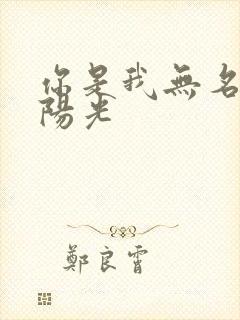 你是我無名
陽光
鄭良霄